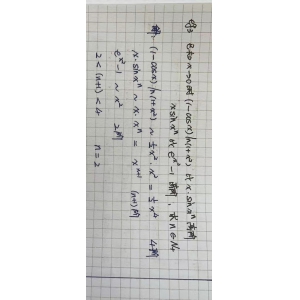 例3 已知x→0时 (1-cosx)ln(1+x²) 比 x·sinxⁿ 高阶
xsinxⁿ 比 e^{x²}-1 高阶, 求n∈N+
解: (1-cosx)ln(1+x²) ~ ½x²·x² = ½x⁴ 4阶
x·sinxⁿ ~ x·xⁿ = xⁿ⁺¹ (n+1)阶
e^{x²}-1 ~ x² 2阶
2<(n+1)<4 n=2